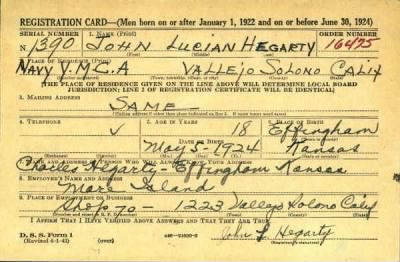 REGISTRATION CARD—(Men born on or after January 1, 1922 and on or before June 30, 1924)
SERIAL NUMBER 1. NAME (Print) ORDER NUMBER
N 1390 JOHN LUCIAN HEGARTY 16475
2. PLACE OF RESIDENCE (Print)
NAVY Y.M.C.A VALLEJO SOLONO CALIF
[THE PLACE OF RESIDENCE GIVEN ON THE LINE ABOVE WILL DETERMINE LOCAL BOARD
JURISDICTION; LINE 2 OF REGISTRATION CERTIFICATE WILL BE IDENTICAL]
3. MAILING ADDRESS
SAME
4. TELEPHONE 5. AGE IN YEARS 6. PLACE OF BIRTH
18 Effingham
DATE OF BIRTH
May 5 - 1924 Kansas
7. NAME AND ADDRESS OF PERSON WHO WILL ALWAYS KNOW YOUR ADDRESS
Charles Hegarty - Effingham Kansas
8. EMPLOYER'S NAME AND ADDRESS
Mare Island
9. PLACE OF EMPLOYMENT OR BUSINESS
Shop 70 - 1223 Vallejo Solono Calif
I AFFIRM THAT I HAVE VERIFIED ABOVE ANSWERS AND THAT THEY ARE TRUE.
D. S. S. Form 1
(Revised 4-1-42)
John L. Hegarty